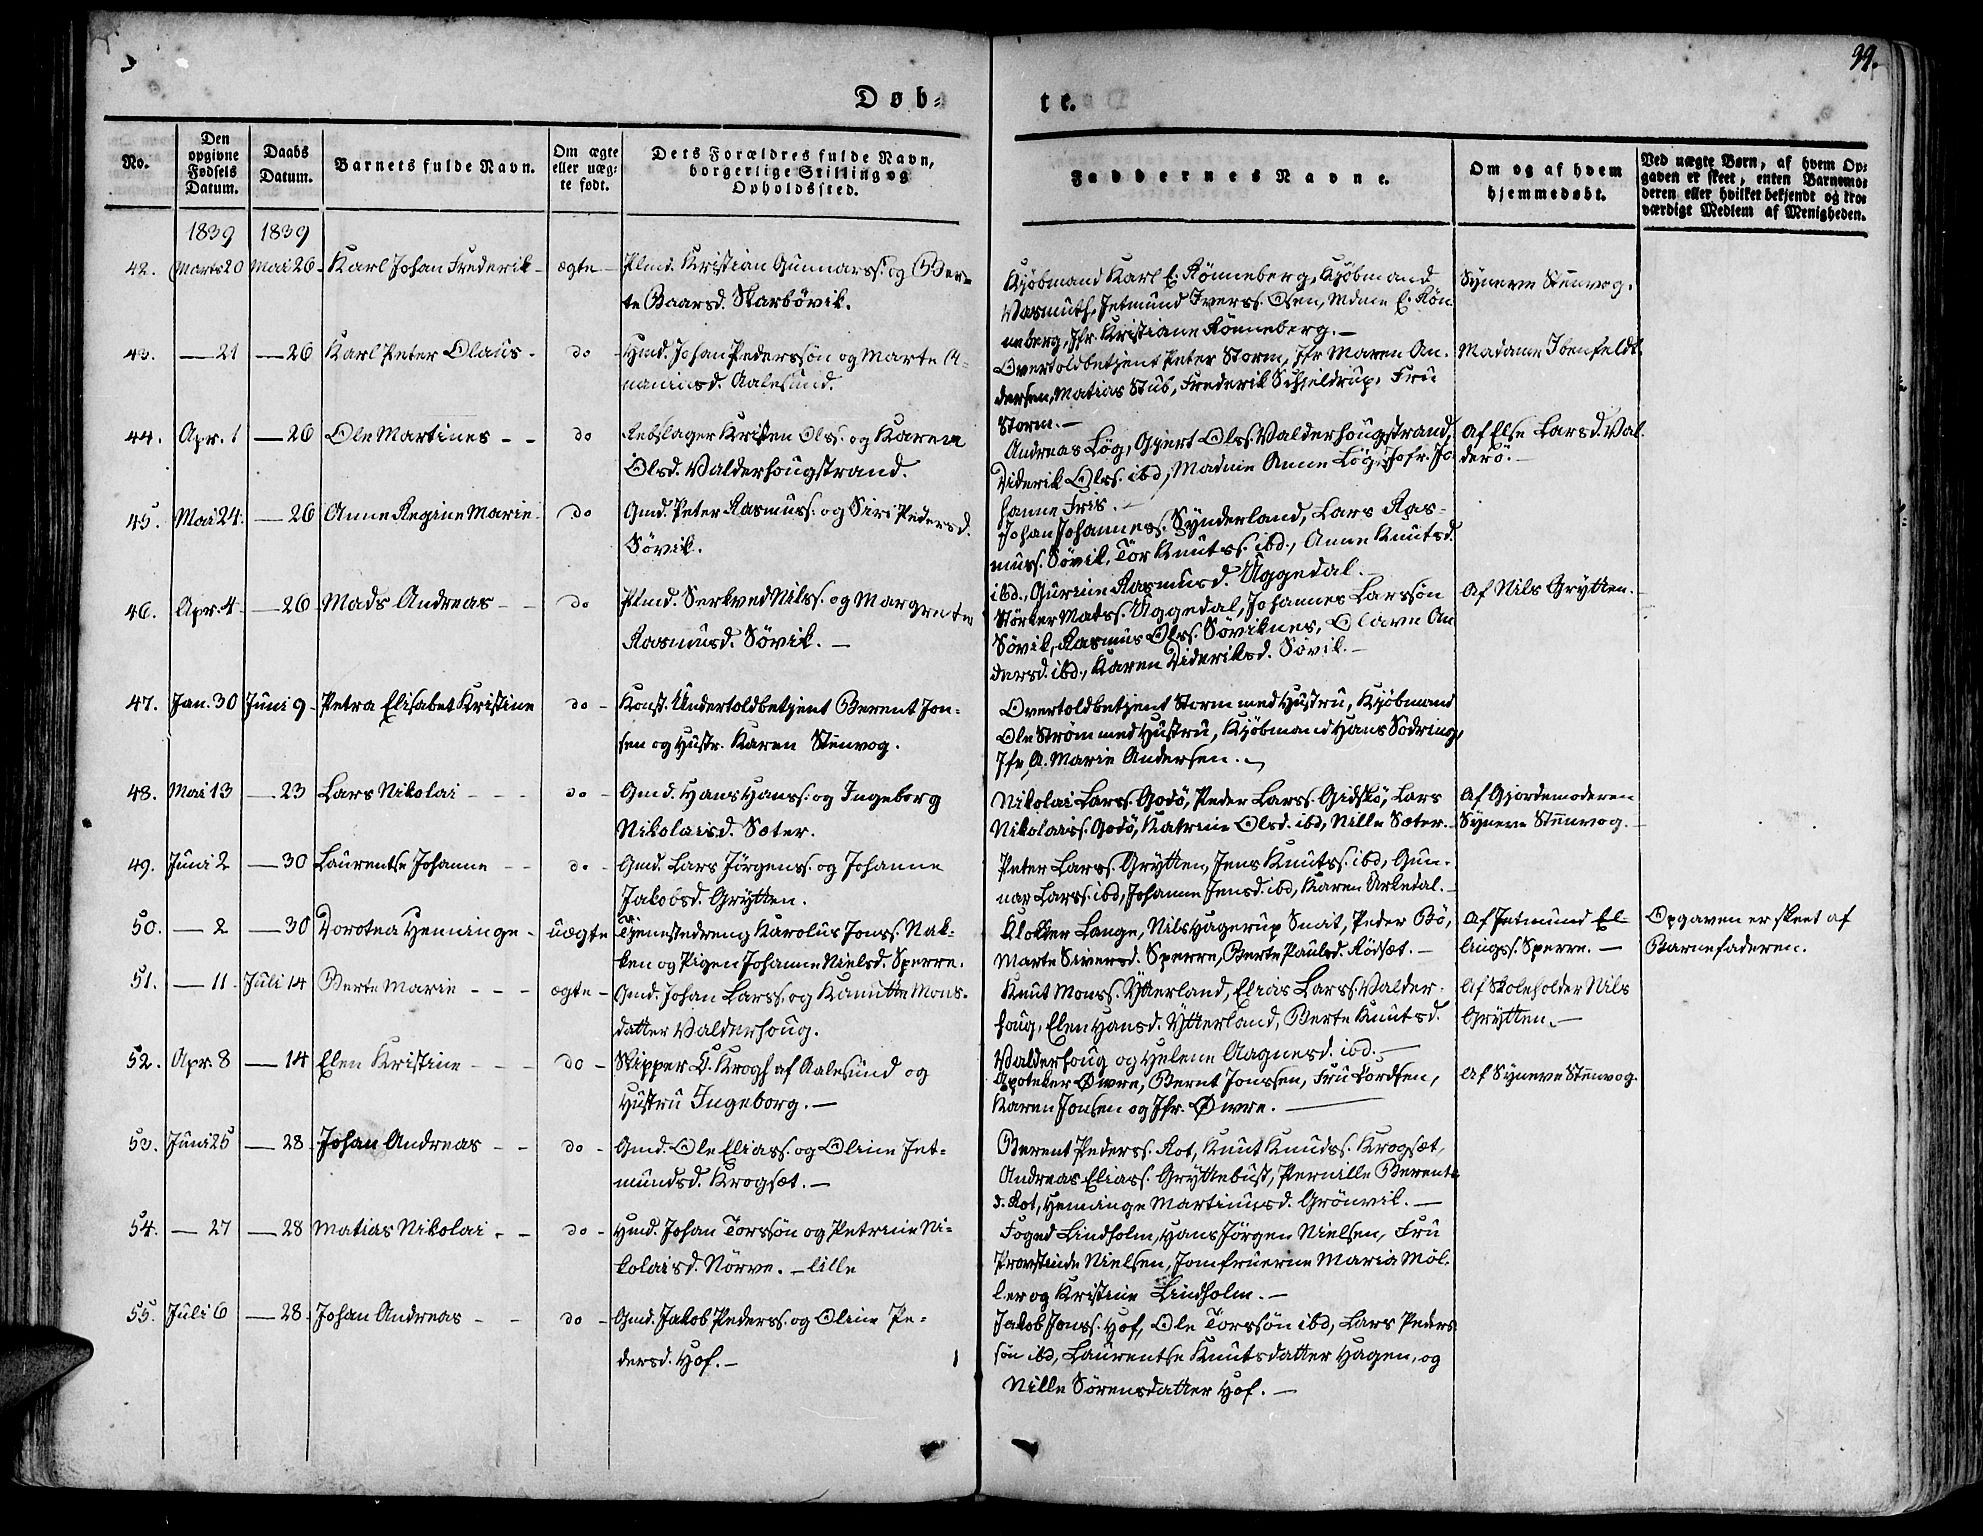 99.
Døb-
te.
No.
Den
opgivne
Fødsels
Datum.
Daabs
Datum.
Barnets fulde Navn.
Om ægte
eller uæg-
te født.
Dets Forældres fulde Navn,
borgerlige Stilling og
Opholdssted.
Faddernes Navne.
Om og af hvem
hjemmedøbt.
Ved uægte Børn, af hvem Op-
gaven er skeet, enten Barnemo-
deren eller hvilket bekjendt og tro-
værdigt Medlem af Menigheden.
1839 1839
42. Marts 20 Mai 26 Karl Johan Frederik - ægte - Plmd. Kristian Gunnarss. og Ber-
te Baarsd. Skarbövik.
Kjöbmand Karl E. Rönneberg, Kjöbmand
Vasmuth, Jetmund Iverss. Olsen, Mdme E. Rön
neberg, Jfr. Kristiane Rönneberg. -
Synneve Stenvog.
43. - 21 - 26 Karl Peter Olaus - do - Hmd. Johan Pederssön og Marte A-
naniasd. Aalesund.
Overtoldbetjent Peter Storm, Jfr Maren An-
dersen, Matias Stub, Frederik Schjeldrup, Fru
Storm. -
Madame Ibenfeldt.
44. Apr. 1 - 26 Ole Martines - - do Rebslager Kristen Olss. og Karen
Olsd. Valderhougstrand.
Andreas Lög, Gjert Olss. Valderhougstrand,
Diderik Olss. ibd, Madme Anne Lög, Jofr. Jo
hanne Fris. -
Af Else Larsd. Val-
derö. -
45. Mai 24. - 26 Anne Regine Marie. do Gmd. Peter Rasmuss. og Siri Pedersd.
Sövik.
Johan Johanness. Synderland, Lars Ras-
muss. Sövik, Tor Knutss. ibd., Anne Knutsd.
ibd., Gurine Rasmusd. Uggedal. -
46. Apr. 4 - 26 Mads Andreas - - do Plmd. Serkved Nilss. og Margrete
Rasmusd. Sövik. -
Störker Madss. Uggedal, Johannes Larssön
Sövik, Rasmus Olss. Söviknes, Olave An
dersd. ibd., Karen Dideriksd. Sövik. -
Af Nils Grytten.
47. Jan. 30 Juni 9 - Petra Elisabet Kristine do - Konst. Undertoldbetjent Berent Jon-
sen og Hustr. Karen Stenvog.
Overtoldbetjent Storm med Hustru, Kjöbmand
Ole Ström med Hustru, Kjöbmand Hans Södring,
Jfr. A. Marie Andersen.
48. Mai 13 - 23 Lars Nikolai - - - do - Gmd. Hans Hanss. og Ingeborg
Nikolaisd. Sæter.
Nikolai Larss. Godö, Peder Larss. Gidskö, Lars
Nikolaiss. Godö, Katrine Olsd. ibd, Nille Sæter. -
Af Gjordemoderen
Synneve Stenvog. -
49. Juni 2 - 30 Laurentse Johanne - - do - Gmd. Lars Jörgenss. og Johanne
Jakobsd. Grytten.
Peter Larss. Grytten, Jens Knutss. ibd, Gun-
nar Larss. ibd, Johanne Jensd. ibd, Karen Urkedal. -
50. - 2 - 30 Dorotea Heminge - uægte Tjenestedreng Karolus Jonss. Nak-
ken og Pigen Johanne Nielsd. Sperre.
Klokker Lange, Nils Hagerup Smit, Peder Bö,
Marte Siversd. Sperre, Berte Paulsd. Rödsæt. -
Af Jetmund El-
lingss. Sperre. -
Opgaven er skeet af
Barnefaderen.
51. - 11 - Juli 14 Berte Marie - - - ægte - Gmd. Johan Larss. og Kanutte Mons-
datter Valderhoug.
Knut Monss. Ytterland, Elias Larss. Valder-
houg, Elen Hansd. Ytterland, Berte Knutsd.
Valderhoug og Helene Aagnesd. ibd. -
Af Skoleholder Nils
Grytten. -
52. Apr. 8 - 14 Elen Kristine - - - do - Skipper C. Krogh af Aalesund og
Hustru Ingeborg. -
Apoteker Øwre, Bernt Jonssen, Fru Tordsen,
Karen Jonsen og Jfr. Øwre. -
Af Synneve Stenvog.
53. Juni 25 - 28 Johan Andreas - - do - Gmd. Ole Eliass. og Oline Jet-
mundsd. Krogsæt. -
Berent Pederss. Rot, Knut Knudss. Krogsæt,
Andreas Eliass. Gryttebust, Pernille Berents
d. Rot, Heminge Martinusd. Grönvik. -
54. - 27 - 28 Matias Nikolai - - do - Hmd. Johan Torssön og Petrine Ni-
kolaisd. Nörve. - lille
Foged Lindholm, Hans Jörgen Nielsen, Fru
Provstinde Nielsen, Jomfruerne Maria Möl-
ler og Kristine Lindholm. -
55. Juli 6 - 28. Johan Andreas - - do - Gmd. Jakob Pederss. og Oline Pe-
dersd. Hof. -
Jakob Jonss. Hof, Ole Torssön ibd, Lars Peders
sön ibd, Laurentse Knutsdatter Hagen, og
Nille Sörensdatter Hof. -